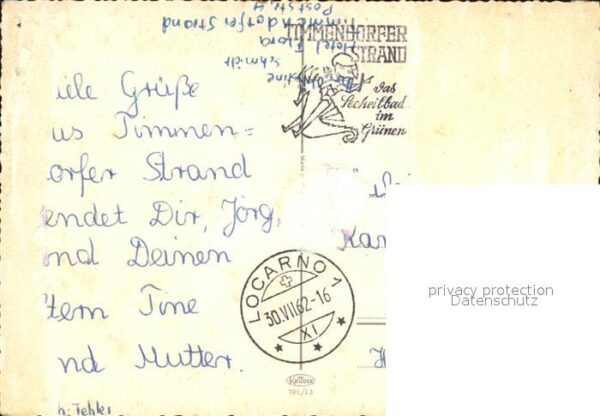 Schmidt
Hotel Flora
Timmendorfer Strand
Poststr. 4
TIMMENDORFER
STRAND
Das
Seeheilbad
im
Grünen
iele Grüße
us Timmen=
orfer Strand
endet Dir, Jörg,
nd Deinen
tern Tine
nd Mutter.
Kar
H
LOCARNO 1
30.VII.62-16
XI
Krüger
privacy protection
Datenschutz